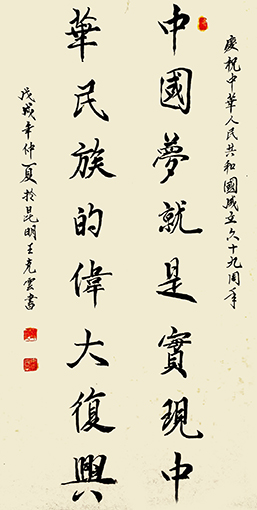 慶祝中華人民共和國成立六十九周年
中國夢就是實現中
華民族的偉大復興
戊戌年仲夏於昆明王克雲書